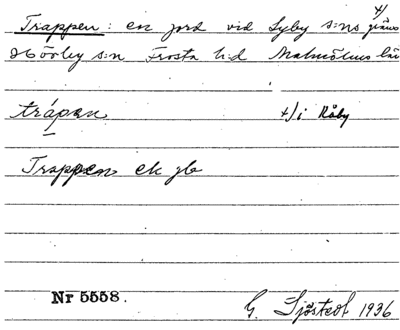 +/
Trappen : en jord vid Lyby s:ns gräns
Hörby s:n Frosta h:d Malmöhus län
trápan +/ i Råby
Trappen ek jb
Nr 5558.
G. Sjöstedt 1936